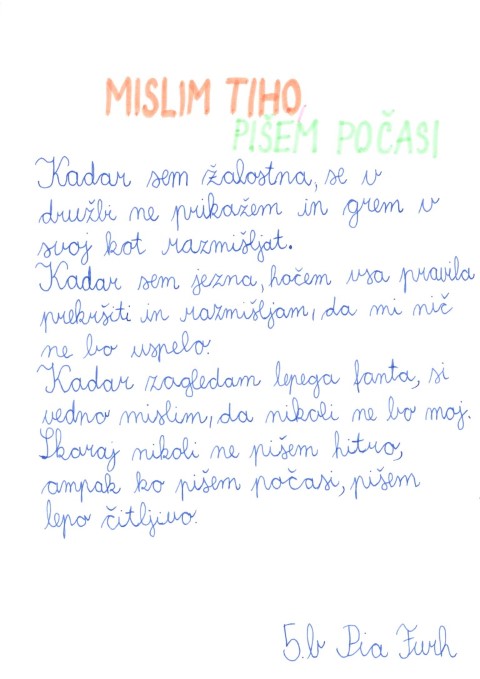 MISLIM TIHO,
PIŠEM POČASI
Kadar sem žalostna, se v
družbi ne prikažem in grem v
svoj kot razmišljat.
Kadar sem jezna, hočem vsa pravila
prekršiti in razmišljam, da mi nič
ne bo uspelo.
Kadar zagledam lepega fanta, si
vedno mislim, da nikoli ne bo moj.
Skoraj nikoli ne pišem hitro,
ampak ko pišem počasi, pišem
lepo čitljivo.
5.b Pia Furh